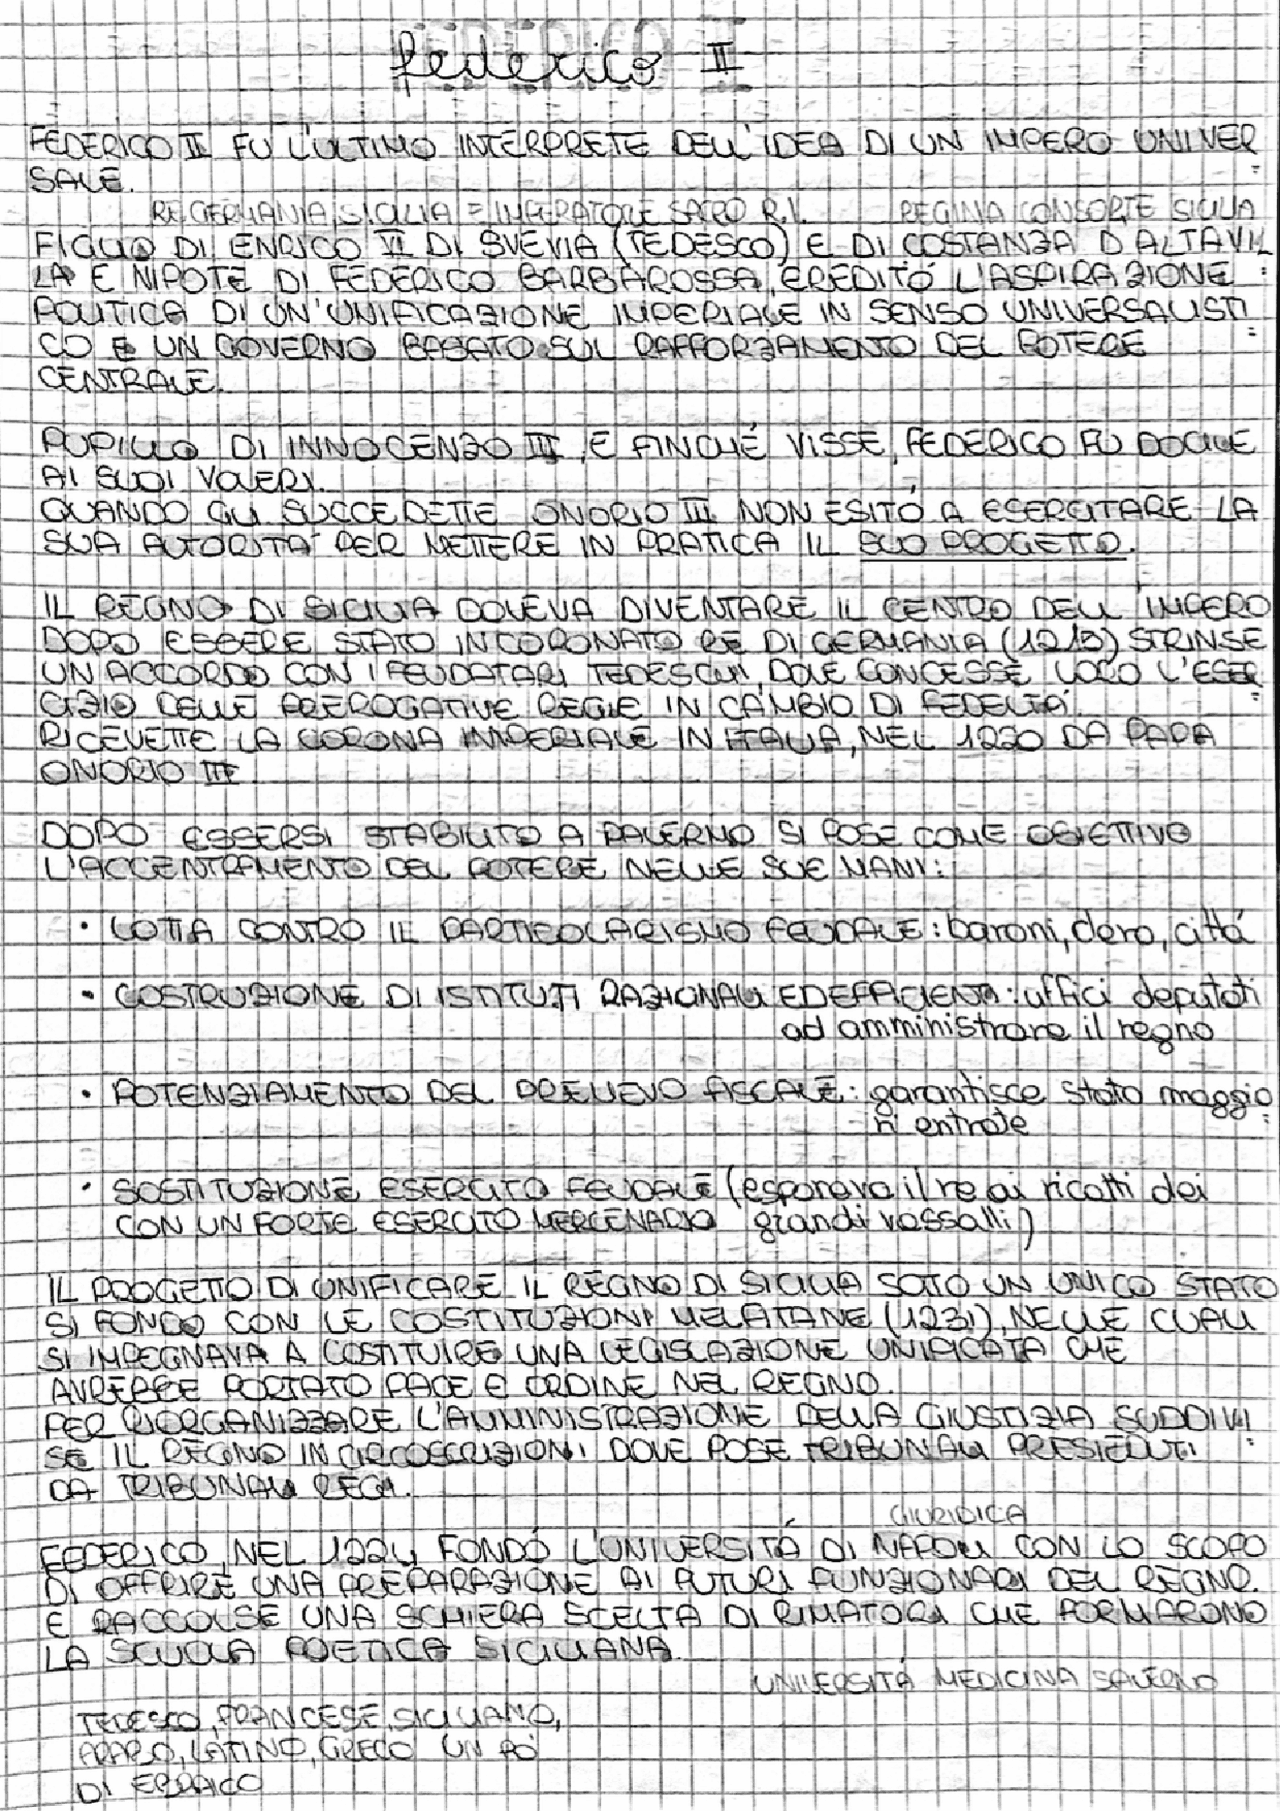 federico II
FEDERICO II FU L'ULTIMO INTERPRETE DELL'IDEA DI UN IMPERO UNIVER
SALE.
RE GERMANIA, SICILIA = IMPERATORE SACRO R.I. REGINA CONSORTE SICILIA
FIGLIO DI ENRICO VI DI SVEVIA (TEDESCO) E DI COSTANZA D'ALTAVIL
LA E NIPOTE DI FEDERICO BARBAROSSA, EREDITÓ L'ASPIRAZIONE
POLITICA DI UN'UNIFICAZIONE IMPERIALE IN SENSO UNIVERSALISTI
CO E UN GOVERNO BASATO SUL RAFFORZAMENTO DEL POTERE
CENTRALE.
PUPILLO DI INNOCENZO III, E FINCHÉ VISSE, FEDERICO FU DOCILE
AI SUOI VOLERI.
QUANDO GLI SUCCEDETTE ONORIO III NON ESITÓ A ESERCITARE LA
SUA AUTORITÁ PER METTERE IN PRATICA IL SUO PROGETTO.
IL REGNO DI SICILIA DOVEVA DIVENTARE IL CENTRO DELL'IMPERO
DOPO ESSERE STATO INCORONATO RE DI GERMANIA (1215) STRINSE
UN ACCORDO CON I FEUDATARI TEDESCHI, DOVE CONCESSE LORO L'ESER
CIZIO DELLE PREROGATIVE REGIE IN CAMBIO DI FEDELTÁ.
RICEVETTE LA CORONA IMPERIALE IN ITALIA, NEL 1220 DA PAPA
ONORIO III
DOPO ESSERSI STABILITO A PALERMO SI POSE COME OBIETTIVO
L'ACCENTRAMENTO DEL POTERE NELLE SUE MANI:
• LOTTA CONTRO IL PARTICOLARISMO FEUDALE: baroni, clero, cittá
• COSTRUZIONE DI ISTITUTI RAZIONALI ED EFFICIENTI: uffici deputati
ad amministrare il regno
• POTENZIAMENTO DEL PRELIEVO FISCALE: garantisce stato maggio
ri entrate
• SOSTITUZIONE ESERCITO FEUDALE (esponeva il re ai ricatti dei
CON UN FORTE ESERCITO MERCENARIO grandi vassalli)
IL PROGETTO DI UNIFICARE IL REGNO DI SICILIA SOTTO UN UNICO STATO
SI FONDÓ CON LE COSTITUZIONI MELFITANE (1231), NELLE QUALI
SI IMPEGNAVA A COSTITUIRE UNA LEGISLAZIONE UNIFICATA CHE
AVREBBE PORTATO PACE E ORDINE NEL REGNO.
PER RIORGANIZZARE L'AMMINISTRAZIONE DELLA GIUSTIZIA SUDDIVI
SE IL REGNO IN CIRCOSCRIZIONI DOVE POSE TRIBUNALI PRESIEDUTI
DA TRIBUNALI REGI.
GIURIDICA
FEDERICO, NEL 1224 FONDÓ L'UNIVERSITÁ DI NAPOLI CON LO SCOPO
DI OFFRIRE UNA PREPARAZIONE AI FUTURI FUNZIONARI DEL REGNO.
E RACCOLSE UNA SCHIERA SCELTA DI RIMATORI CHE FORMARONO
LA SCUOLA POETICA SICILIANA.
UNIVERSITÁ MEDICINA SALERNO
TEDESCO, FRANCESE, SICILIANO,
ARABO, LATINO, GRECO UN PÓ
DI EBRAICO